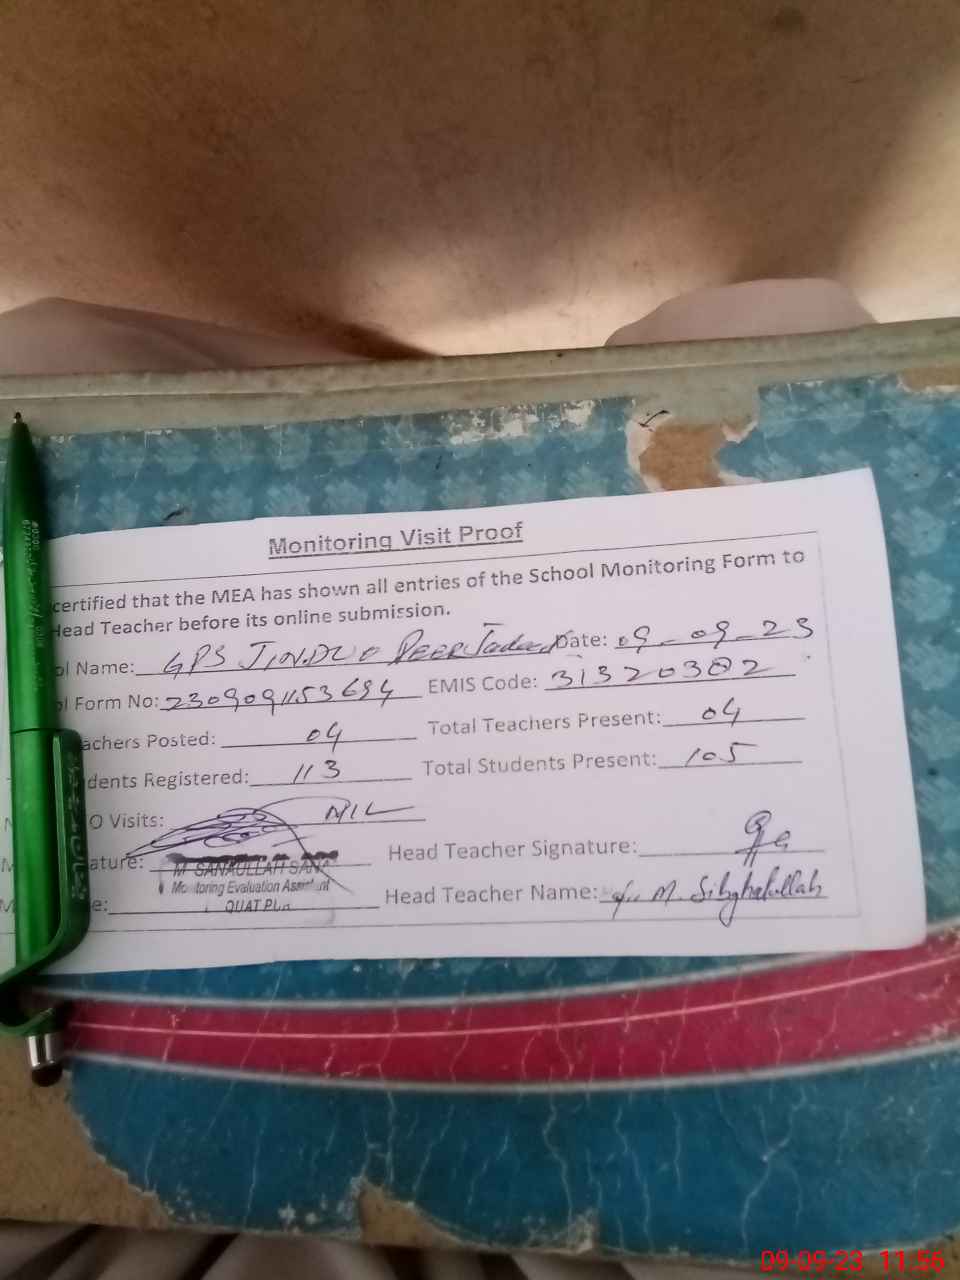 Monitoring Visit Proof
certified that the MEA has shown all entries of the School Monitoring Form to
Head Teacher before its online submission.
ol Name: GPS JINDUO PEER Date: 09-09-23
ol Form No: 2309091153694 EMIS Code: 31320302
achers Posted: 04 Total Teachers Present: 04
dents Registered: 113 Total Students Present: 105
O Visits: NIL
ature: Head Teacher Signature:
M SANAULLAH SANA
Monitoring Evaluation Assistant
e: Head Teacher Name: M. Sibghatullah
09-09-23 11:56